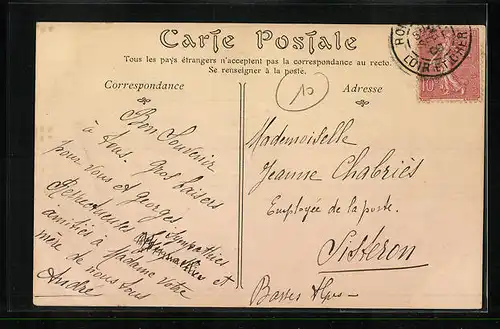 Carte Postale
Tous les pays étrangers n'acceptent pas la correspondance au recto.
Se renseigner à la poste.
Correspondance
Adresse
LOIR-ET-CHER
10
10
Bon Souvenir
à tous. Gros baisers
pour vous et Georges
Sympathies et
amitiés à Madame votre
mère de nous tous
André
Mademoiselle
Jeanne Chabriès
Employée de la poste.
Sisteron
Basses Alpes